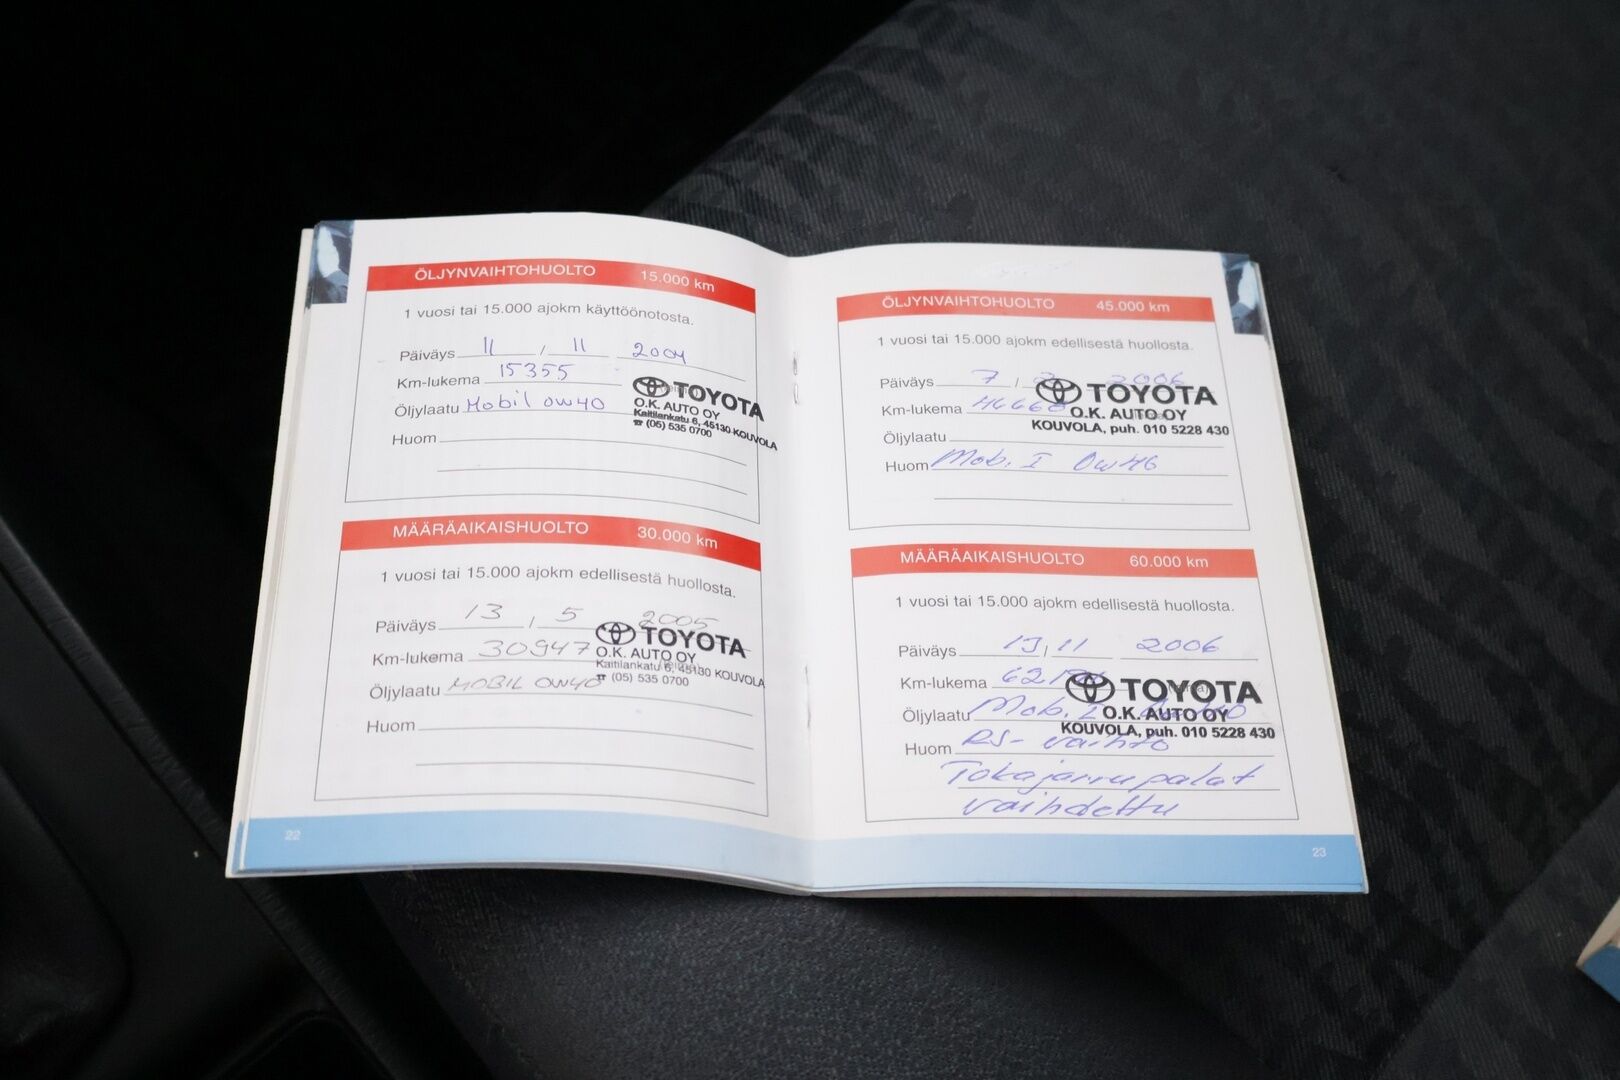 ÖLJYNVAIHTOHUOLTO 15.000 km
1 vuosi tai 15.000 ajokm käyttöönotosta.
Päiväys 11 / 11 2004
Km-lukema 15355
Öljylaatu Mobil 0W40
Huom
TOYOTA
O.K. AUTO OY
Kaitilankatu 6, 45130 KOUVOLA
☎ (05) 535 0700
MÄÄRÄAIKAISHUOLTO 30.000 km
1 vuosi tai 15.000 ajokm edellisestä huollosta.
Päiväys 13 / 5 2005
Km-lukema 30947
Öljylaatu MOBIL 0W40
Huom
TOYOTA
O.K. AUTO OY
Kaitilankatu 6, 45130 KOUVOLA
☎ (05) 535 0700
22
ÖLJYNVAIHTOHUOLTO 45.000 km
1 vuosi tai 15.000 ajokm edellisestä huollosta.
Päiväys 7 / 2006
Km-lukema
Öljylaatu
Huom Mob. I 0W46
TOYOTA
O.K. AUTO OY
KOUVOLA, puh. 010 5228 430
MÄÄRÄAIKAISHUOLTO 60.000 km
1 vuosi tai 15.000 ajokm edellisestä huollosta.
Päiväys 13 / 11 2006
Km-lukema
Öljylaatu Mob. I
Huom RJ-vaihto
Takajarrupalat
vaihdettu
TOYOTA
O.K. AUTO OY
KOUVOLA, puh. 010 5228 430
23